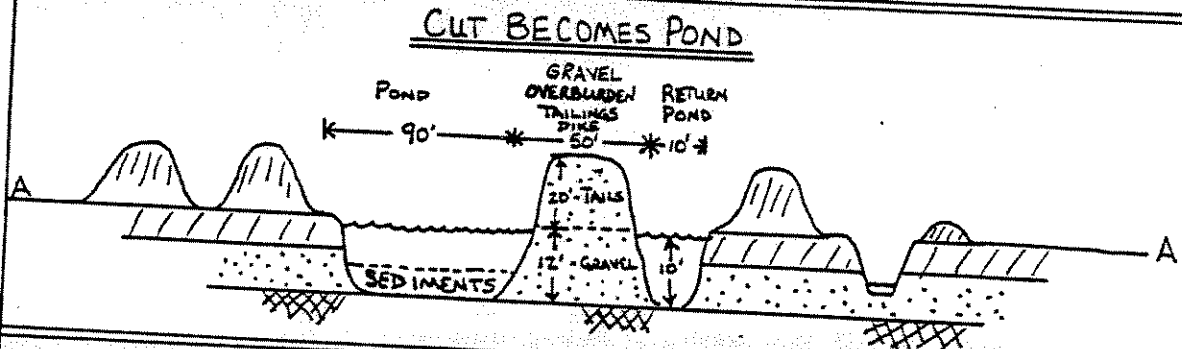 CUT BECOMES POND
POND
90'
GRAVEL
OVERBURDEN
TAILINGS
DIKE
50'
RETURN
POND
10'
A
20'-TAILS
12'-GRAVEL
10'
SEDIMENTS
A